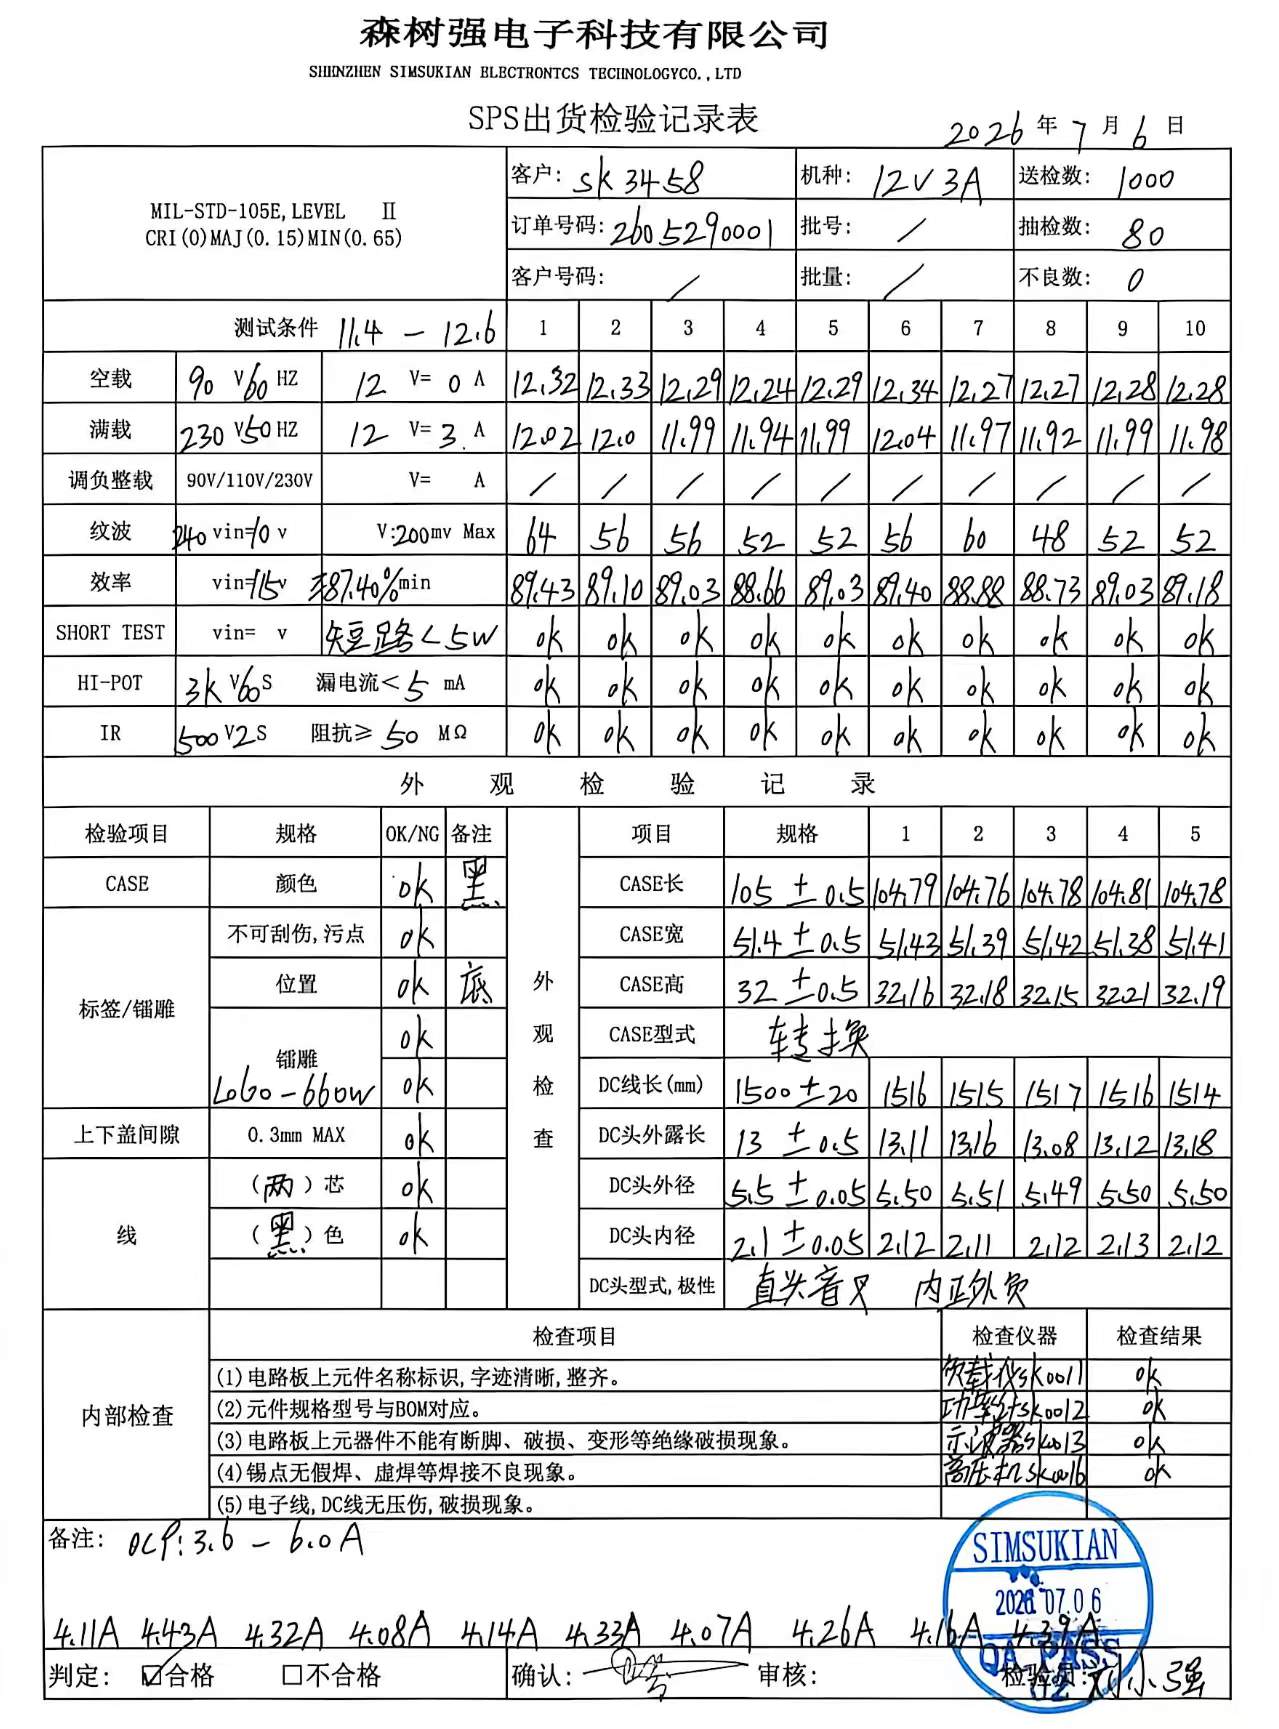 森树强电子科技有限公司
SHENZHEN SIMSUKIAN ELECTRONTCS TECHNOLOGYCO.,LTD
SPS出货检验记录表
2026 年 7 月 6 日
MIL-STD-105E,LEVEL Ⅱ
CRI(0)MAJ(0.15)MIN(0.65)
客户: SK3458 机种: 12V3A 送检数: 1000
订单号码: 2605290001 批号: / 抽检数: 80
客户号码: / 批量: / 不良数: 0
测试条件 11.4 - 12.6 1 2 3 4 5 6 7 8 9 10
空载 90 V 60 HZ 12 V= 0 A 12.32 12.33 12.29 12.24 12.29 12.34 12.27 12.27 12.28 12.28
满载 230 V 50 HZ 12 V= 3. A 12.02 12.0 11.99 11.94 11.99 12.04 11.97 11.92 11.99 11.98
调负整载 90V/110V/230V V= A / / / / / / / / / /
纹波 240 vin= v V:200mv Max 64 56 56 52 52 56 60 48 52 52
效率 vin= v 87.40%min 89.43 89.10 89.03 88.66 89.03 89.40 88.88 88.73 89.03 89.18
SHORT TEST vin= v 短路<5W ok ok ok ok ok ok ok ok ok ok
HI-POT 3K V 60 S 漏电流< 5 mA ok ok ok ok ok ok ok ok ok ok
IR 500 V 2 S 阻抗≥ 50 MΩ ok ok ok ok ok ok ok ok ok ok
外观检验记录
检验项目 规格 OK/NG 备注 项目 规格 1 2 3 4 5
CASE 颜色 ok 黑 CASE长 105 ±0.5 104.79 104.76 104.78 104.81 104.78
不可刮伤,污点 ok CASE宽 51.4 ±0.5 51.43 51.39 51.42 51.38 51.41
标签/镭雕 位置 ok 底 外观检查 CASE高 32 ±0.5 32.16 32.18 32.15 32.21 32.19
ok CASE型式 转换
镭雕 LOGO-660W ok DC线长(mm) 1500±20 1516 1515 1517 1516 1514
上下盖间隙 0.3mm MAX ok DC头外露长 13 ±0.5 13.11 13.16 13.08 13.12 13.18
(两)芯 ok DC头外径 5.5 ±0.05 5.50 5.51 5.49 5.50 5.50
线 (黑)色 ok DC头内径 2.1 ±0.05 2.12 2.11 2.12 2.13 2.12
DC头型式,极性 直头音叉 内正外负
内部检查 检查项目 检查仪器 检查结果
(1)电路板上元件名称标识,字迹清晰,整齐。 负载仪SK0011 ok
(2)元件规格型号与BOM对应。 功率计SK0012 ok
(3)电路板上元器件不能有断脚、破损、变形等绝缘破损现象。 示波器SK0013 ok
(4)锡点无假焊、虚焊等焊接不良现象。 高压机SK0016 ok
(5)电子线,DC线无压伤,破损现象。
备注: OCP:3.6 - 6.0A
SIMSUKIAN
2026.07.06
4.11A 4.43A 4.32A 4.08A 4.14A 4.33A 4.07A 4.26A 4.16A 4.39A
QA PASS
02
判定: ☑合格 □不合格 确认: 审核: 检验员: 刘小强